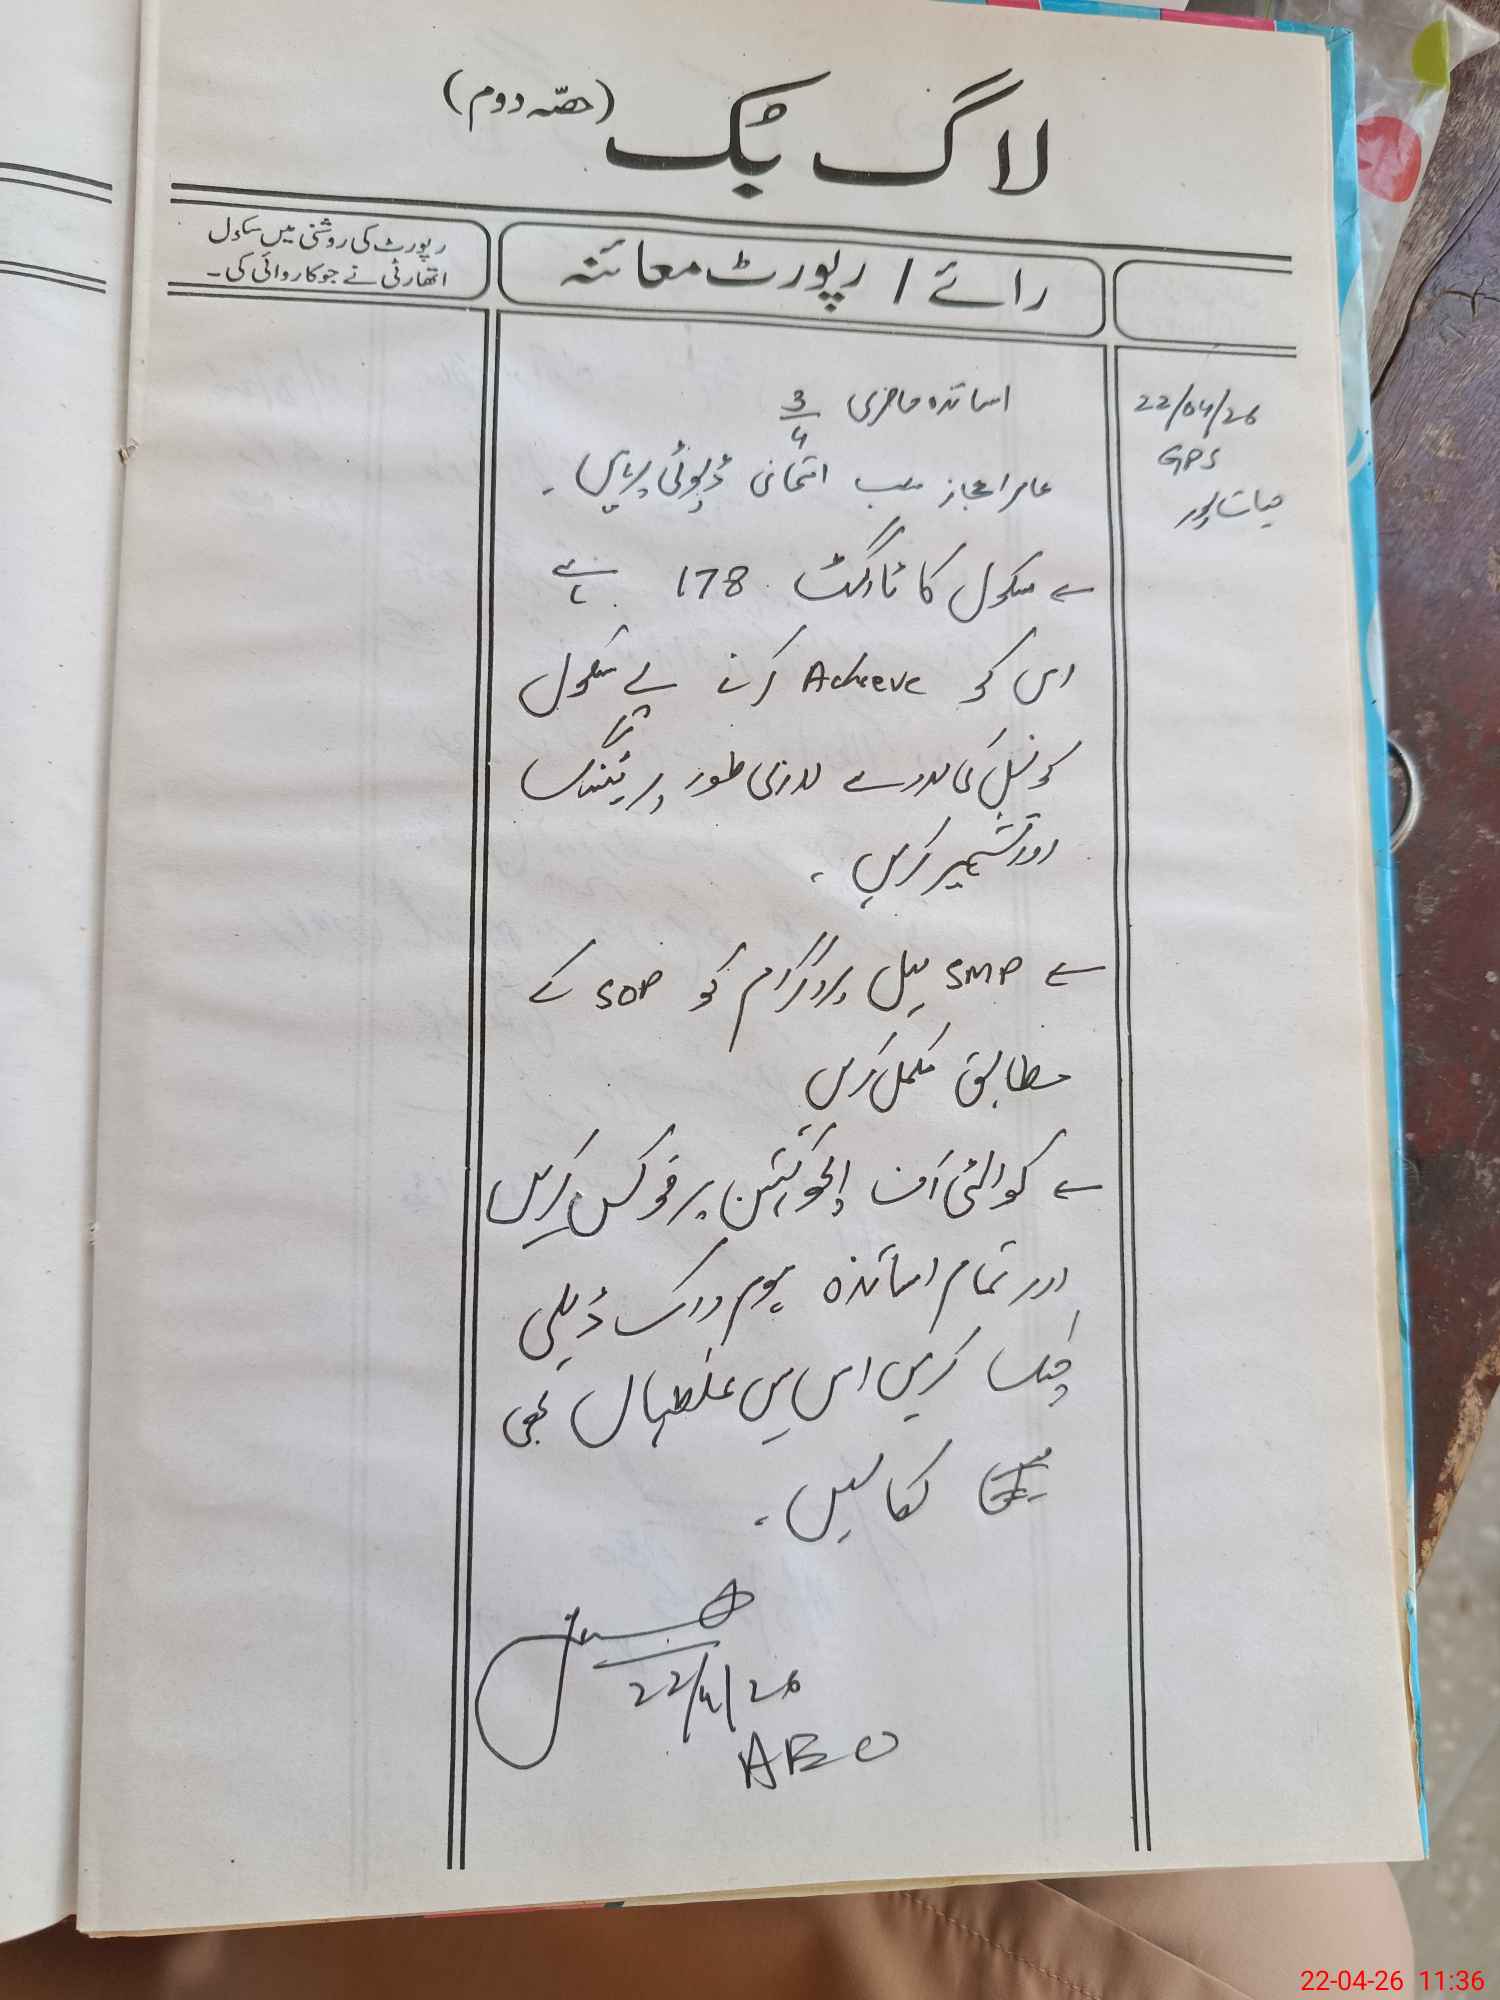 لاگ بک (حصّہ دوم)
رائے / رپورٹ معائنہ
رپورٹ کی روشنی میں سکول
اتھارٹی نے جو کاروائی کی۔
22/04/26
GPS
حیات پور
اساتذہ حاضری 3/4
عامر اعجاز صاحب امتحانی ڈیوٹی پر ہیں۔
سکول کا ٹارگٹ 178 ہے
اس کو Acheeve کرنے کے لیے سکول
کونسل کی مدد سے لازمی طور پر میٹنگ
اور تشہیر کریں۔
SMP میل پروگرام کو SOP کے
مطابق مکمل کریں
کوالٹی آف ایجوکیشن پر فوکس کریں
اور تمام اساتذہ ہوم ورک ڈیلی
چیک کریں اس میں غلطیاں بھی
نکالیں۔
22/4/26
AEO
22-04-26 11:36